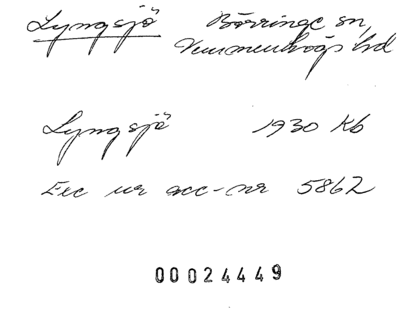 Lyngsjö Börringe sn,
Vemmenhögs hd
Lyngsjö 1930 Kb
Exc ur acc-nr 5862
00024449